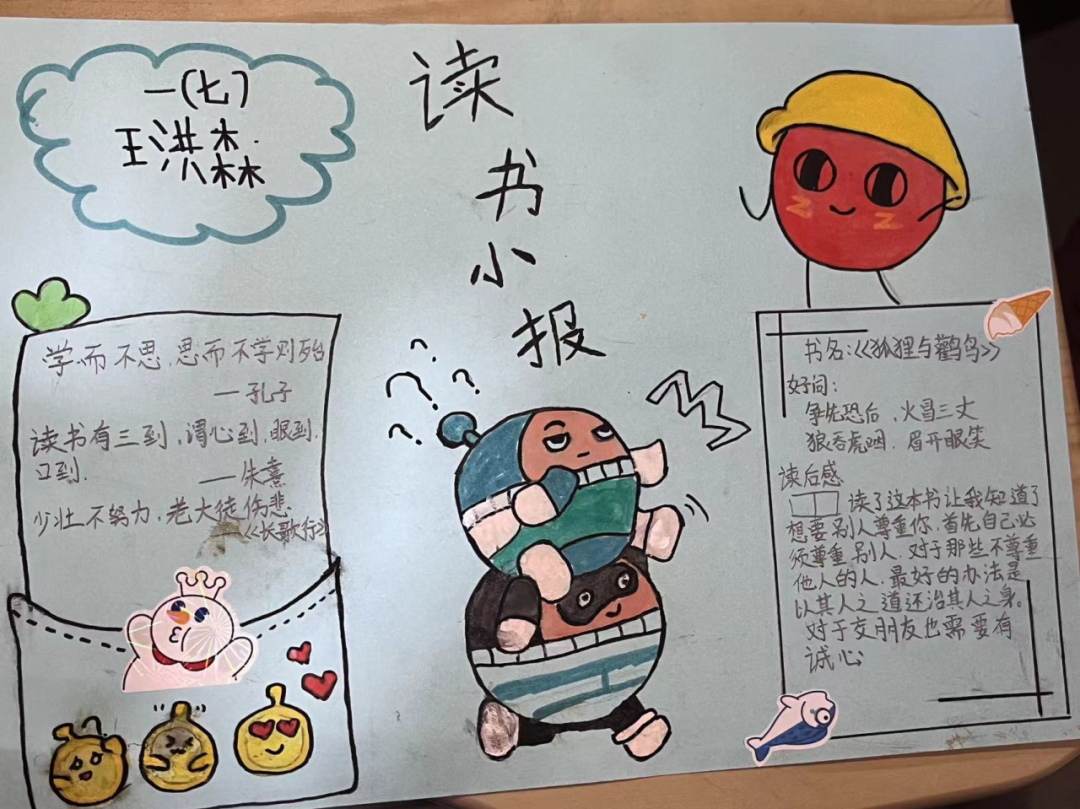 一(七)
王洪森
读
书
小
报
学而不思,思而不学则殆
—孔子
读书有三到,谓心到,眼到.
口到.
—朱熹
少壮不努力,老大徒伤悲.
《长歌行》
书名:《狐狸与鹳鸟》
好词:
争先恐后,火冒三丈
狼吞虎咽.眉开眼笑
读后感
读了这本书让我知道了
想要别人尊重你.首先自己必
须尊重别人.对于那些不尊重
他人的人.最好的办法是
以其人之道还治其人之身。
对于交朋友也需要有
诚心